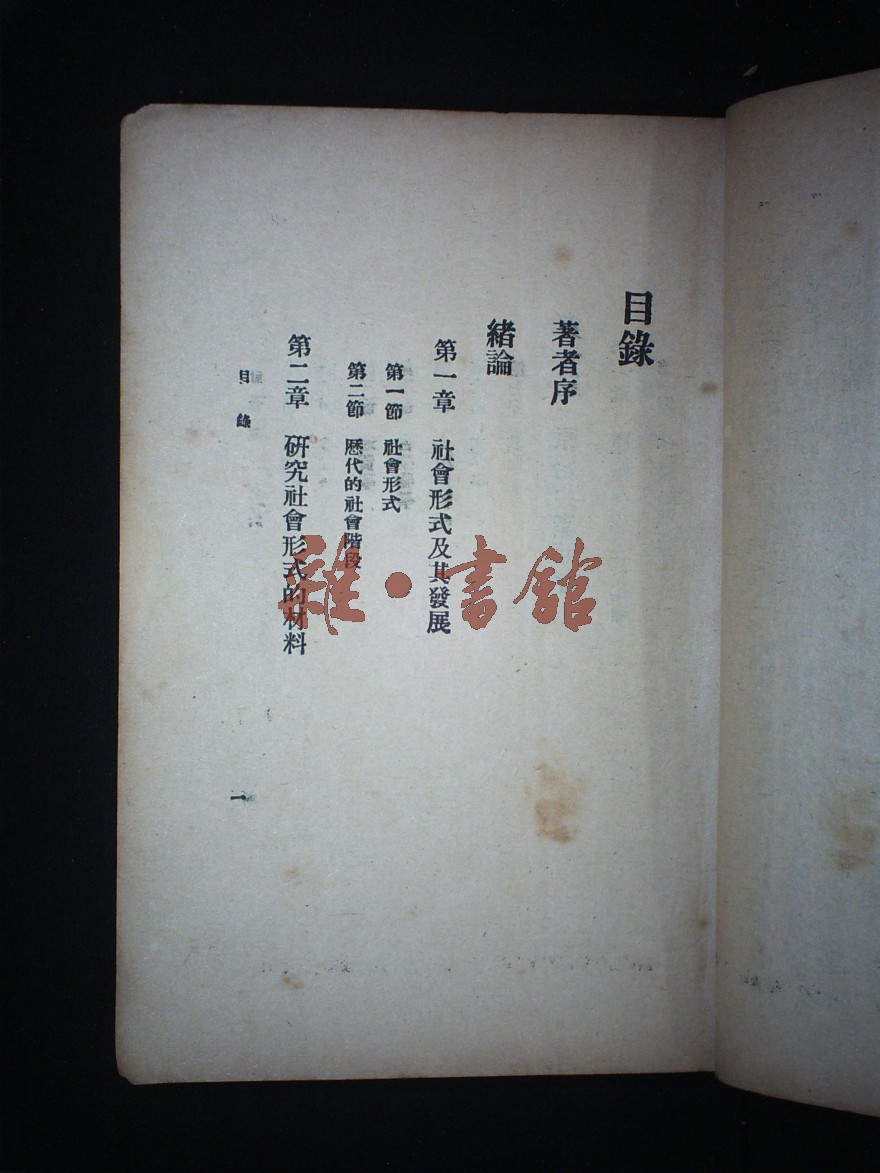 目錄
著者序
緒論
第一章 社會形式及其發展
第一節 社會形式
第二節 歷代的社會階段
第二章 研究社會形式的材料
目錄
一
雜·書館